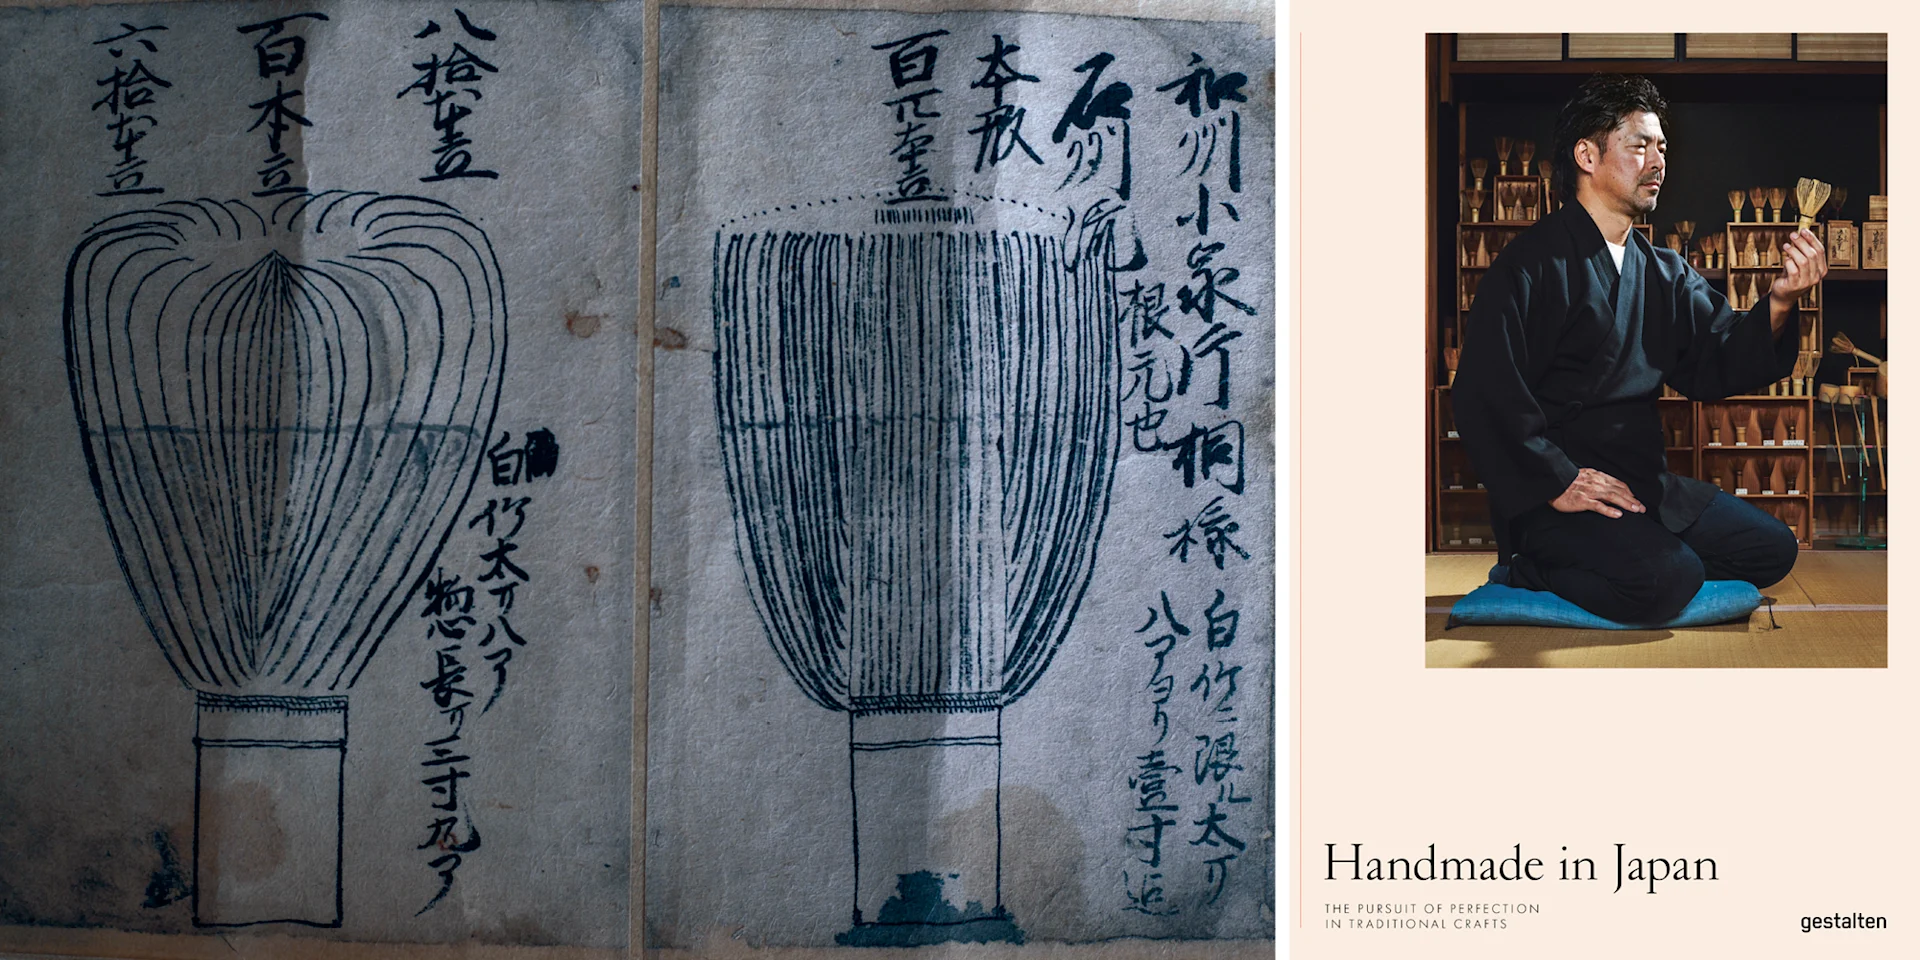 和州小泉片桐様
石州流
根元也
本形
百二本立
白竹ニ限ル太サ
八アヨリ壹寸迄
八拾本立
百本立
六拾本立
白竹太サ八ア
惣長サ三寸九ア
Handmade in Japan
THE PURSUIT OF PERFECTION
IN TRADITIONAL CRAFTS
gestalten